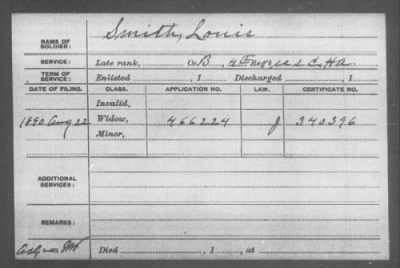 NAME OF SOLDIER: Smith, Louis
SERVICE: Late rank, Co. B, 4th Reg't U S C. H A.
TERM OF SERVICE: Enlisted , 1 Discharged , 1
DATE OF FILING. CLASS. APPLICATION NO. LAW. CERTIFICATE NO.
Invalid,
1890 Aug 22 Widow, 466224 J 340396
Minor,
ADDITIONAL SERVICES:
REMARKS:
Died , 1 , at